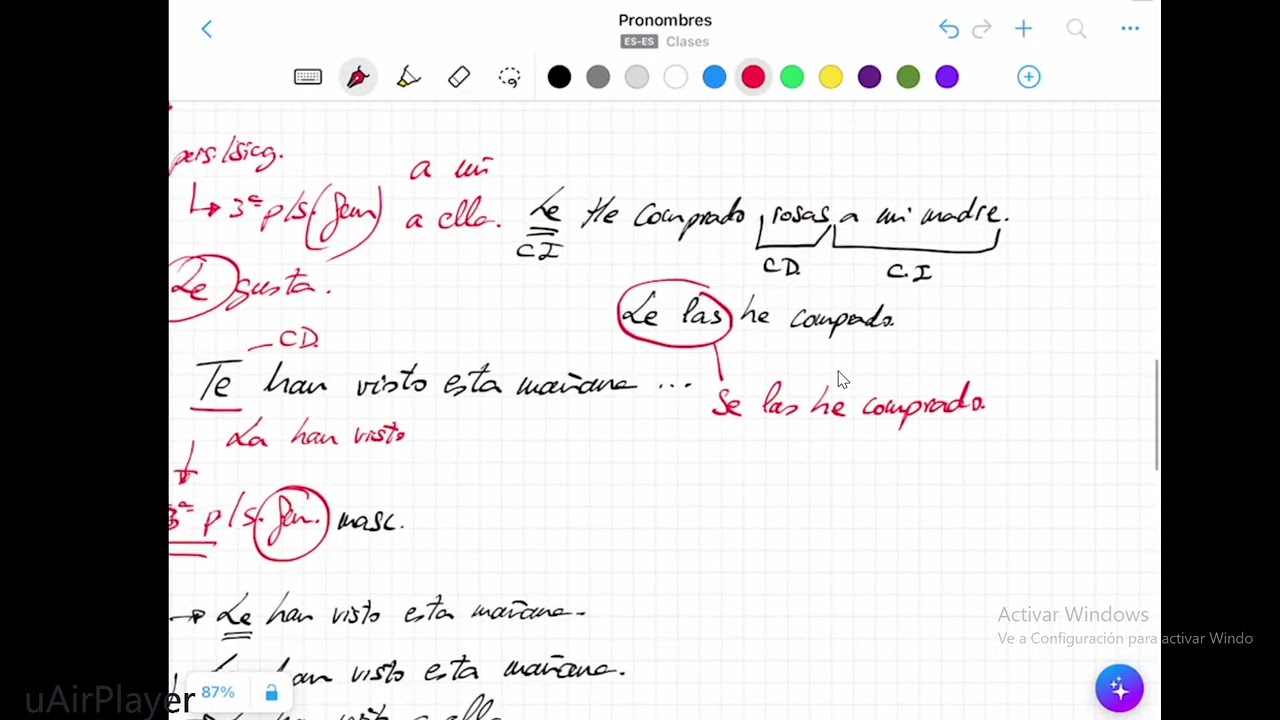 Pronombres
ES-ES Clases
pers./sicq.
a mi
↳ 3ª p/s. (fem) a ella.
Le He comprado rosas a mi madre.
CI
CD.
C.I
Le gusta.
Le las he comprado.
CD.
Te han visto esta mañana ...
Se las he comprado.
La han visto
3ª p/s. fem. masc.
→ Le han visto esta mañana.
han visto esta mañana.
a ella
Activar Windows
Ve a Configuración para activar Windo
87%
uAirPlayer